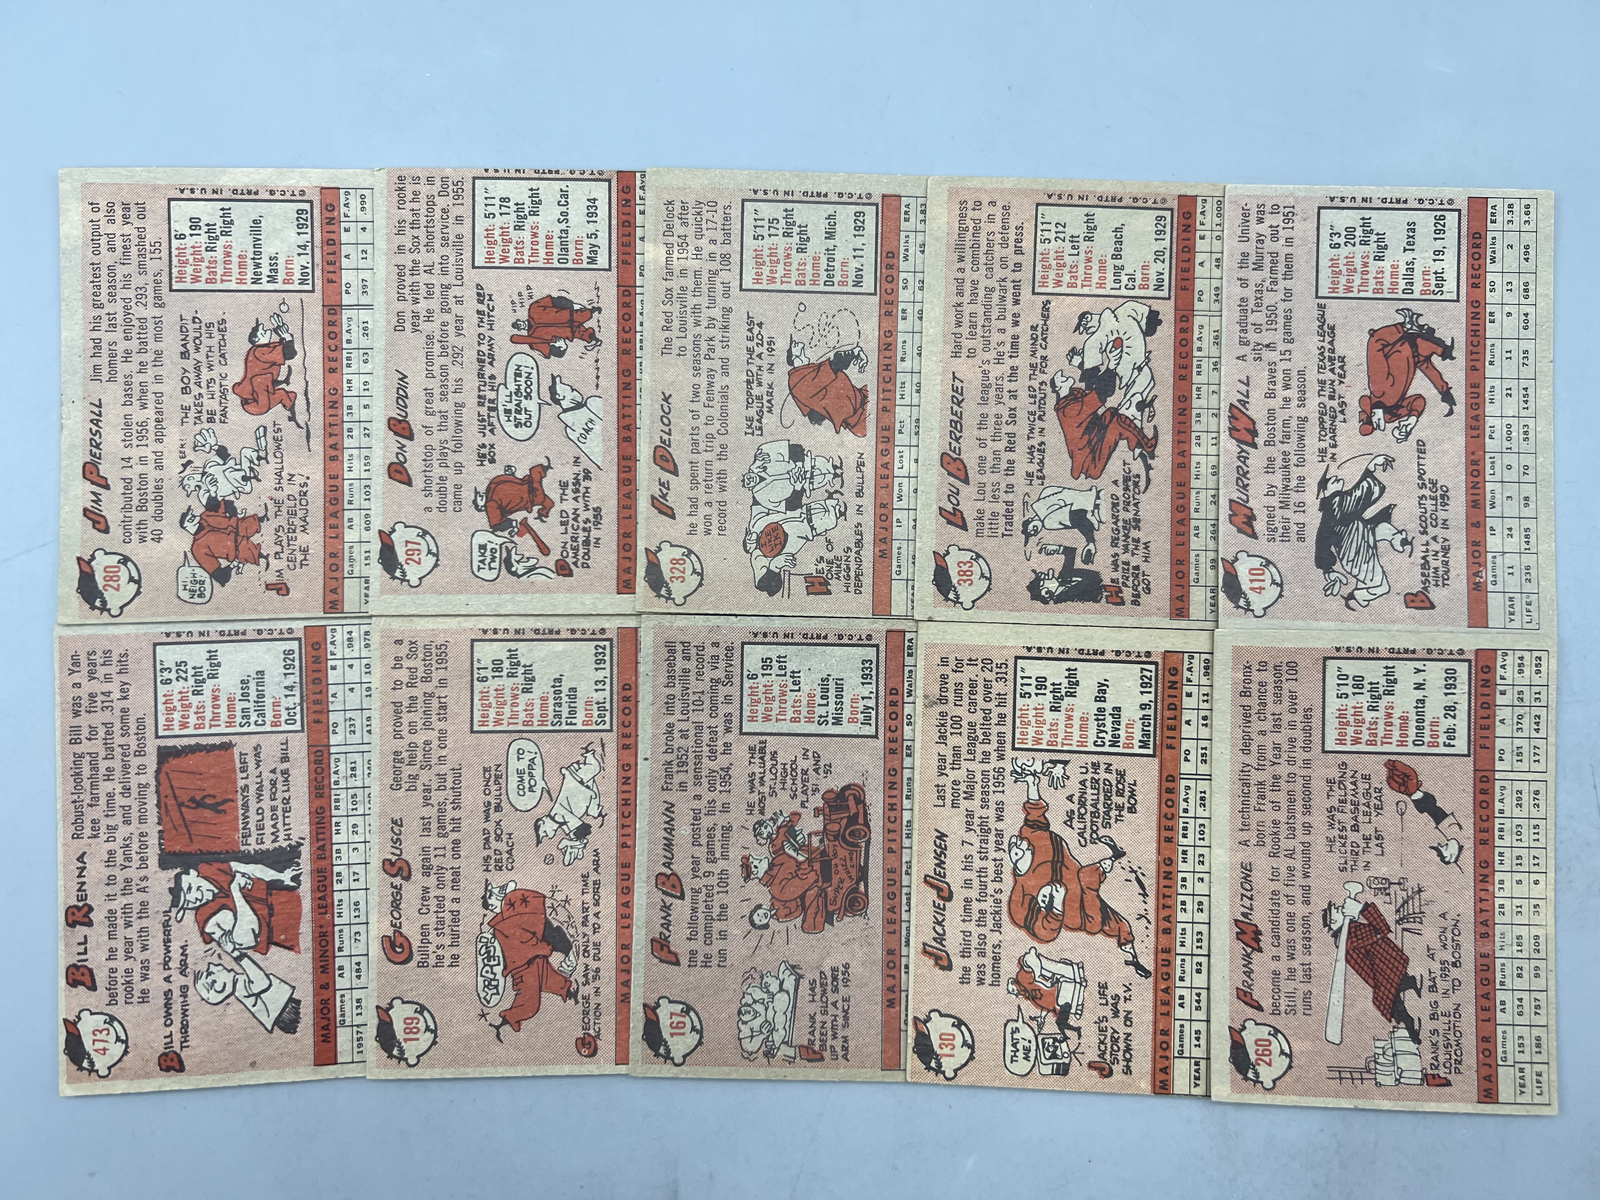 280
JIM PIERSALL
Jim had his greatest output of
homers last season, and also
contributed 14 stolen bases. He enjoyed his finest year
with Boston in 1956, when he batted .293, smashed out
40 doubles and appeared in the most games, 155.
HI NEIGHBOR!
EEK!
THE BOY BANDIT
TAKES AWAY WOULD-
BE HITS WITH HIS
FANTASTIC CATCHES.
JIM PLAYS THE SHALLOWEST
CENTERFIELD IN
THE MAJORS!
Height: 6'
Weight: 190
Bats: Right
Throws: Right
Home:
Newtonville,
Mass.
Born:
Nov. 14, 1929
©T.C.G. PRTD. IN U.S.A.
MAJOR LEAGUE BATTING RECORD FIELDING
Games AB Runs Hits 2B 3B HR RBI B.Avg PO A E F.Avg
YEAR 151 609 103 159 27 5 19 63 .261 397 12 4 .990
297
DON BUDDIN
Don proved in his rookie
year with the Sox that he is
a shortstop of great promise. He led AL shortstops in
double plays that season before going into service. Don
came up following his .292 year at Louisville in 1955.
TAKE TWO.
HE'S JUST RETURNED TO THE RED
SOX AFTER HIS ARMY HITCH
HE'LL
STRAIGHTEN
OUT SOON!
HIP HIP HIP
COACH
DON LED THE
AMERICAN ASSN. IN
DOUBLES WITH 39
IN 1955
Height: 5'11"
Weight: 178
Bats: Right
Throws: Right
Home:
Olanta, So.Car.
Born:
May 5, 1934
©T.C.G. PRTD. IN U.S.A.
MAJOR LEAGUE BATTING RECORD FIELDING
328
IKE DELOCK
The Red Sox farmed Delock
to Louisville in 1954 after
he had spent parts of two seasons with them. He quickly
won a return trip to Fenway Park by turning in a 17-10
record with the Colonials and striking out 108 batters.
IKE TOPPED THE EAST.
LEAGUE WITH A 20-4
MARK IN 1951
HE'S
ONE OF
MIKE
HIGGINS
DEPENDABLES IN BULLPEN
Height: 5'11"
Weight: 175
Throws: Right
Bats: Right
Home:
Detroit, Mich.
Born:
Nov. 11, 1929
©T.C.G. PRTD. IN U.S.A.
MAJOR LEAGUE PITCHING RECORD
Games IP Won Lost Pct Hits Runs ER SO Walks ERA
383
LOU BERBERET
Hard work and a willingness
to learn have combined to
make Lou one of the league's outstanding catchers in a
little less than three years. He's a bulwark on defense.
Traded to the Red Sox at the time we went to press.
HE HAS TWICE LED THE MINOR
LEAGUES IN PUTOUTS FOR CATCHERS
HE WAS REGARDED A
PRIZE YANKEE PROSPECT
BEFORE THE SENATORS
GOT HIM
Height: 5'11"
Weight: 212
Bats: Left
Throws: Right
Home:
Long Beach,
Cal.
Born:
Nov. 20, 1929
©T.C.G. PRTD. IN U.S.A.
MAJOR LEAGUE BATTING RECORD FIELDING
Games AB Runs Hits 2B 3B HR RBI B.Avg PO A E F.Avg
YEAR 99 264 24 69 11 2 7 36 .261 349 48 0 1.000
410
MURRAY WALL
A graduate of the Univer-
sity of Texas, Murray was
signed by the Boston Braves in 1950. Farmed out to
their Milwaukee farm, he won 15 games for them in 1951
and 16 the following season.
HE TOPPED THE TEXAS LEAGUE
IN EARNED RUN AVERAGE
LAST YEAR
BASEBALL SCOUTS SPOTTED
HIM IN A COLLEGE
TOURNEY IN 1950
Height: 6'3"
Weight: 200
Throws: Right
Bats: Right
Home:
Dallas, Texas
Born:
Sept. 19, 1926
©T.C.G. PRTD. IN U.S.A.
MAJOR & MINOR* LEAGUE PITCHING RECORD
Games IP Won Lost Pct Hits Runs ER SO Walks ERA
YEAR 11 24 3 0 1.000 21 11 9 13 2 3.38
LIFE* 236 1485 98 70 .583 1454 735 604 686 496 3.66
473
BILL RENNA
Robust-looking Bill was a Yan-
kee farmhand for five years
before he made it to the big time. He batted .314 in his
rookie year with the Yanks, and delivered some key hits.
He was with the A's before moving to Boston.
BILL OWNS A POWERFUL
THROWING ARM.
FENWAY'S LEFT
FIELD WALL WAS
MADE FOR A
HITTER LIKE BILL
Height: 6'3"
Weight: 225
Bats: Right
Throws: Right
Home:
San Jose,
California
Born:
Oct. 14, 1926
©T.C.G. PRTD. IN U.S.A.
MAJOR & MINOR* LEAGUE BATTING RECORD FIELDING
Games AB Runs Hits 2B 3B HR RBI B.Avg PO A E F.Avg
1957* 138 484 73 136 17 3 29 105 .281 237 4 4 .984
189
GEORGE SUSCE
George proved to be a
big help on the Red Sox
Bullpen Crew again last year. Since joining Boston,
he's started only 11 games, but in one start in 1955,
he hurled a neat one hit shutout.
HIS DAD WAS ONCE
RED SOX BULLPEN
COACH
COME TO
POPPA!
GEORGE SAW ONLY PART TIME
ACTION IN '56 DUE TO A SORE ARM
Height: 6'1"
Weight: 180
Throws: Right
Bats: Right
Home:
Sarasota,
Florida
Born:
Sept. 13, 1932
©T.C.G. PRTD. IN U.S.A.
MAJOR LEAGUE PITCHING RECORD
167
FRANK BAUMANN
Frank broke into baseball
in 1952 at Louisville and
the following year posted a sensational 10-1 record.
He completed 9 games, his only defeat coming via a
run in the 10th inning. In 1954, he was in Service.
HE WAS THE
MOST VALUABLE
ST. LOUIS
HIGH
SCHOOL
PLAYER IN
'51 AND
'52
FRANK HAS
BEEN SLOWED
UP WITH A SORE
ARM SINCE 1956
Height: 6'
Weight: 195
Throws: Left
Bats: Left
Home:
St. Louis,
Missouri
Born:
July 1, 1933
©T.C.G. PRTD. IN U.S.A.
MAJOR LEAGUE PITCHING RECORD
Games IP Won Lost Pct Hits Runs ER SO Walks ERA
130
JACKIE JENSEN
Last year Jackie drove in
more than 100 runs for
the third time in his 7 year Major League career. It
was also the fourth straight season he belted over 20
homers. Jackie's best year was 1956 when he hit .315.
THAT'S
ME!
JACKIE'S LIFE
STORY WAS
SHOWN ON T.V.
AS A
CALIFORNIA U.
FOOTBALLER HE
STARRED IN
THE ROSE
BOWL
Height: 5'11"
Weight: 190
Bats: Right
Throws: Right
Home:
Crystal Bay,
Nevada
Born:
March 9, 1927
©T.C.G. PRTD. IN U.S.A.
MAJOR LEAGUE BATTING RECORD FIELDING
Games AB Runs Hits 2B 3B HR RBI B.Avg PO A E F.Avg
YEAR 145 544 82 153 29 2 23 103 .281 251 16 11 .960
260
FRANK MALZONE
A technicality deprived Bronx-
born Frank from a chance to
become a candidate for Rookie of the Year last season.
Still, he was one of five AL batsmen to drive in over 100
runs last season, and wound up second in doubles.
HE WAS THE
SLICKEST FIELDING
THIRD BASEMAN
IN THE LEAGUE
LAST YEAR.
FRANK'S BIG BAT AT
LOUISVILLE IN 1955 WON A
PROMOTION TO BOSTON.
Height: 5'10"
Weight: 180
Bats: Right
Throws: Right
Home:
Oneonta, N.Y.
Born:
Feb. 28, 1930
©T.C.G. PRTD. IN U.S.A.
MAJOR LEAGUE BATTING RECORD FIELDING
Games AB Runs Hits 2B 3B HR RBI B.Avg PO A E F.Avg
YEAR 153 634 82 185 31 5 15 103 .292 151 370 25 .954
LIFE 186 757 99 209 35 6 17 115 .276 177 442 31 .952